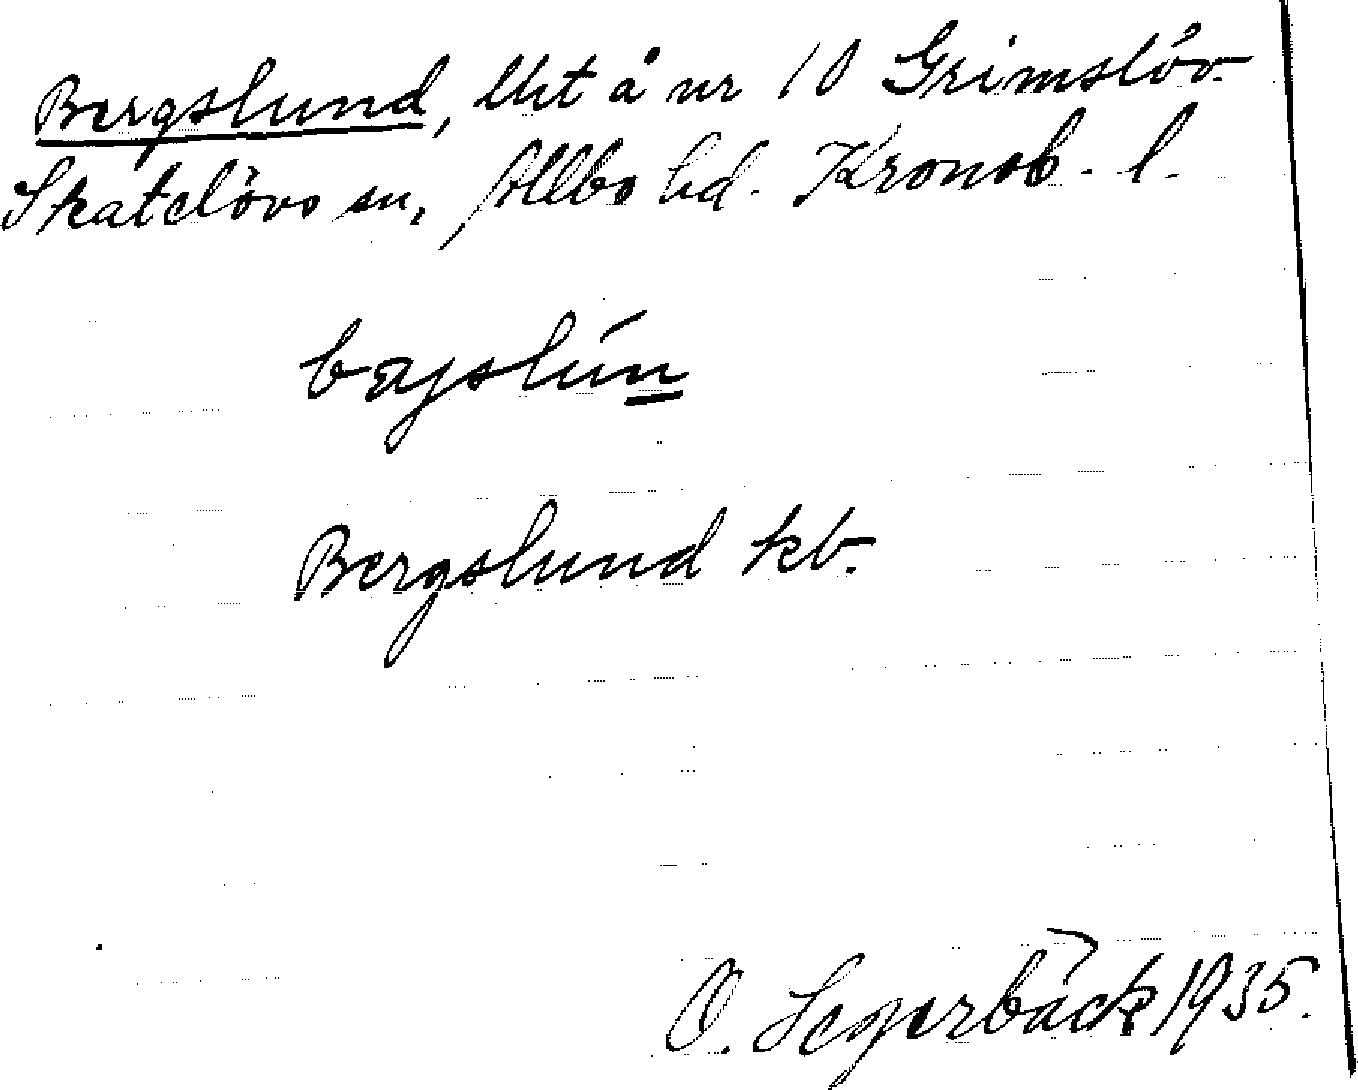 Bergslund, lht å nr 10 Grimslöv.
Skatelövs sn, Allbo hd. Kronob. l.
bæjslún
Bergslund kb.
O. Segerbäck 1935.